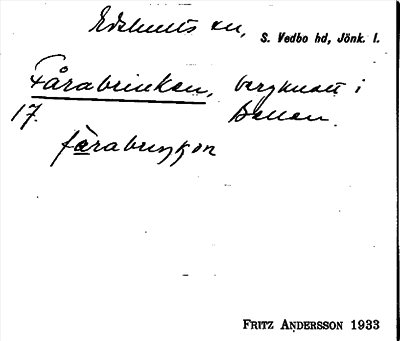 Edshults sn, S. Vedbo hd, Jönk. l.
Fårabrinken, bergknatt i
17.
fårabryŋkɔn
FRITZ ANDERSSON 1933